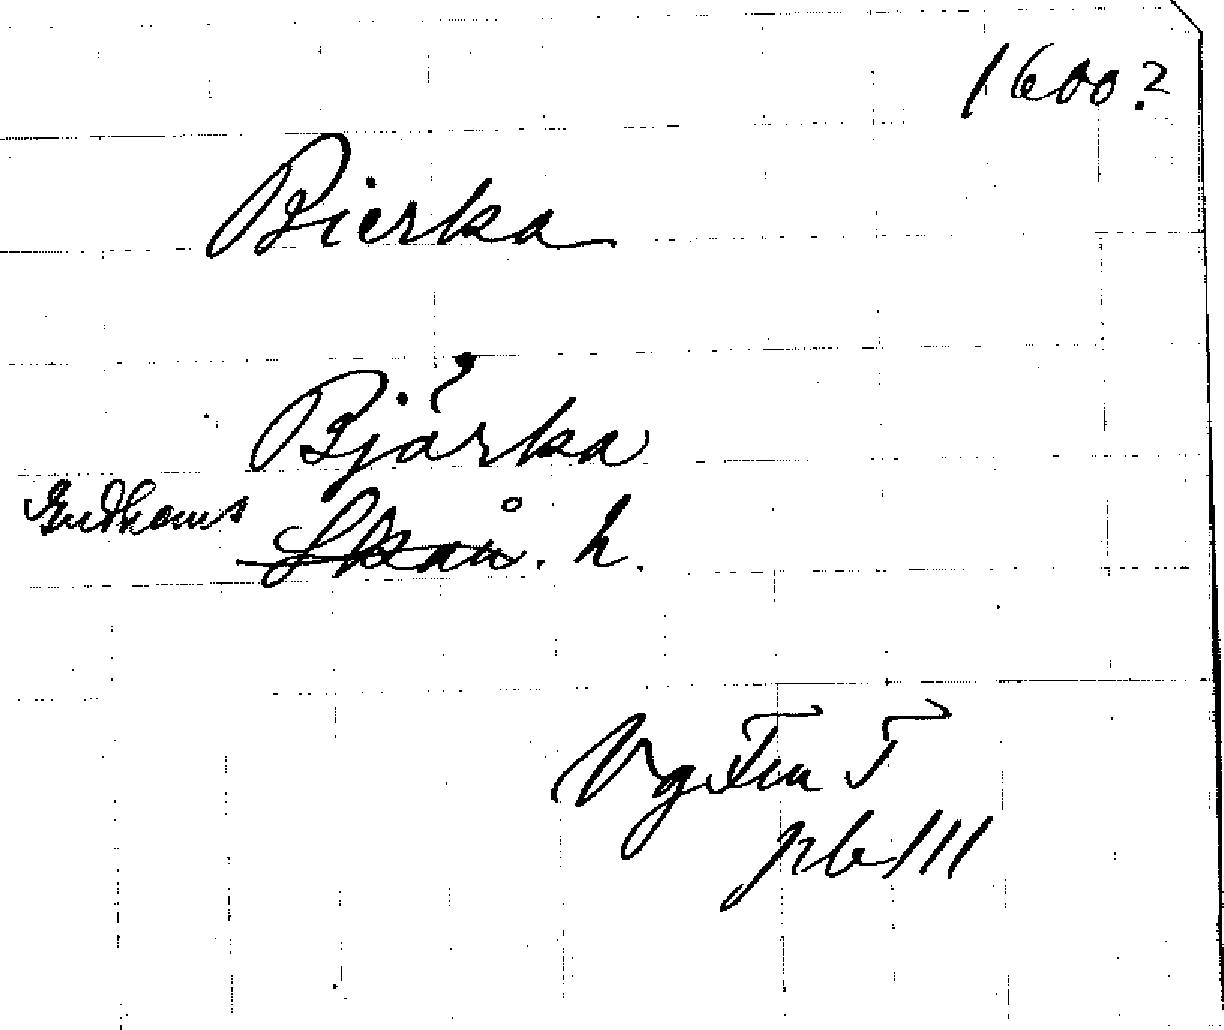 1600?
Bierka
Bjärka
Gudhems Skån. h.
Vg Fru T
pb 111